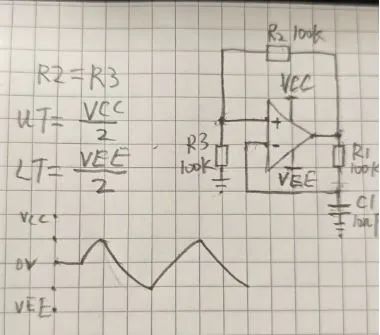 R2=R3
UT= VCC/2
LT= VEE/2
VCC
0V
VEE
R2 100k
VCC
+
-
VEE
R3
100k
R1
100k
C1